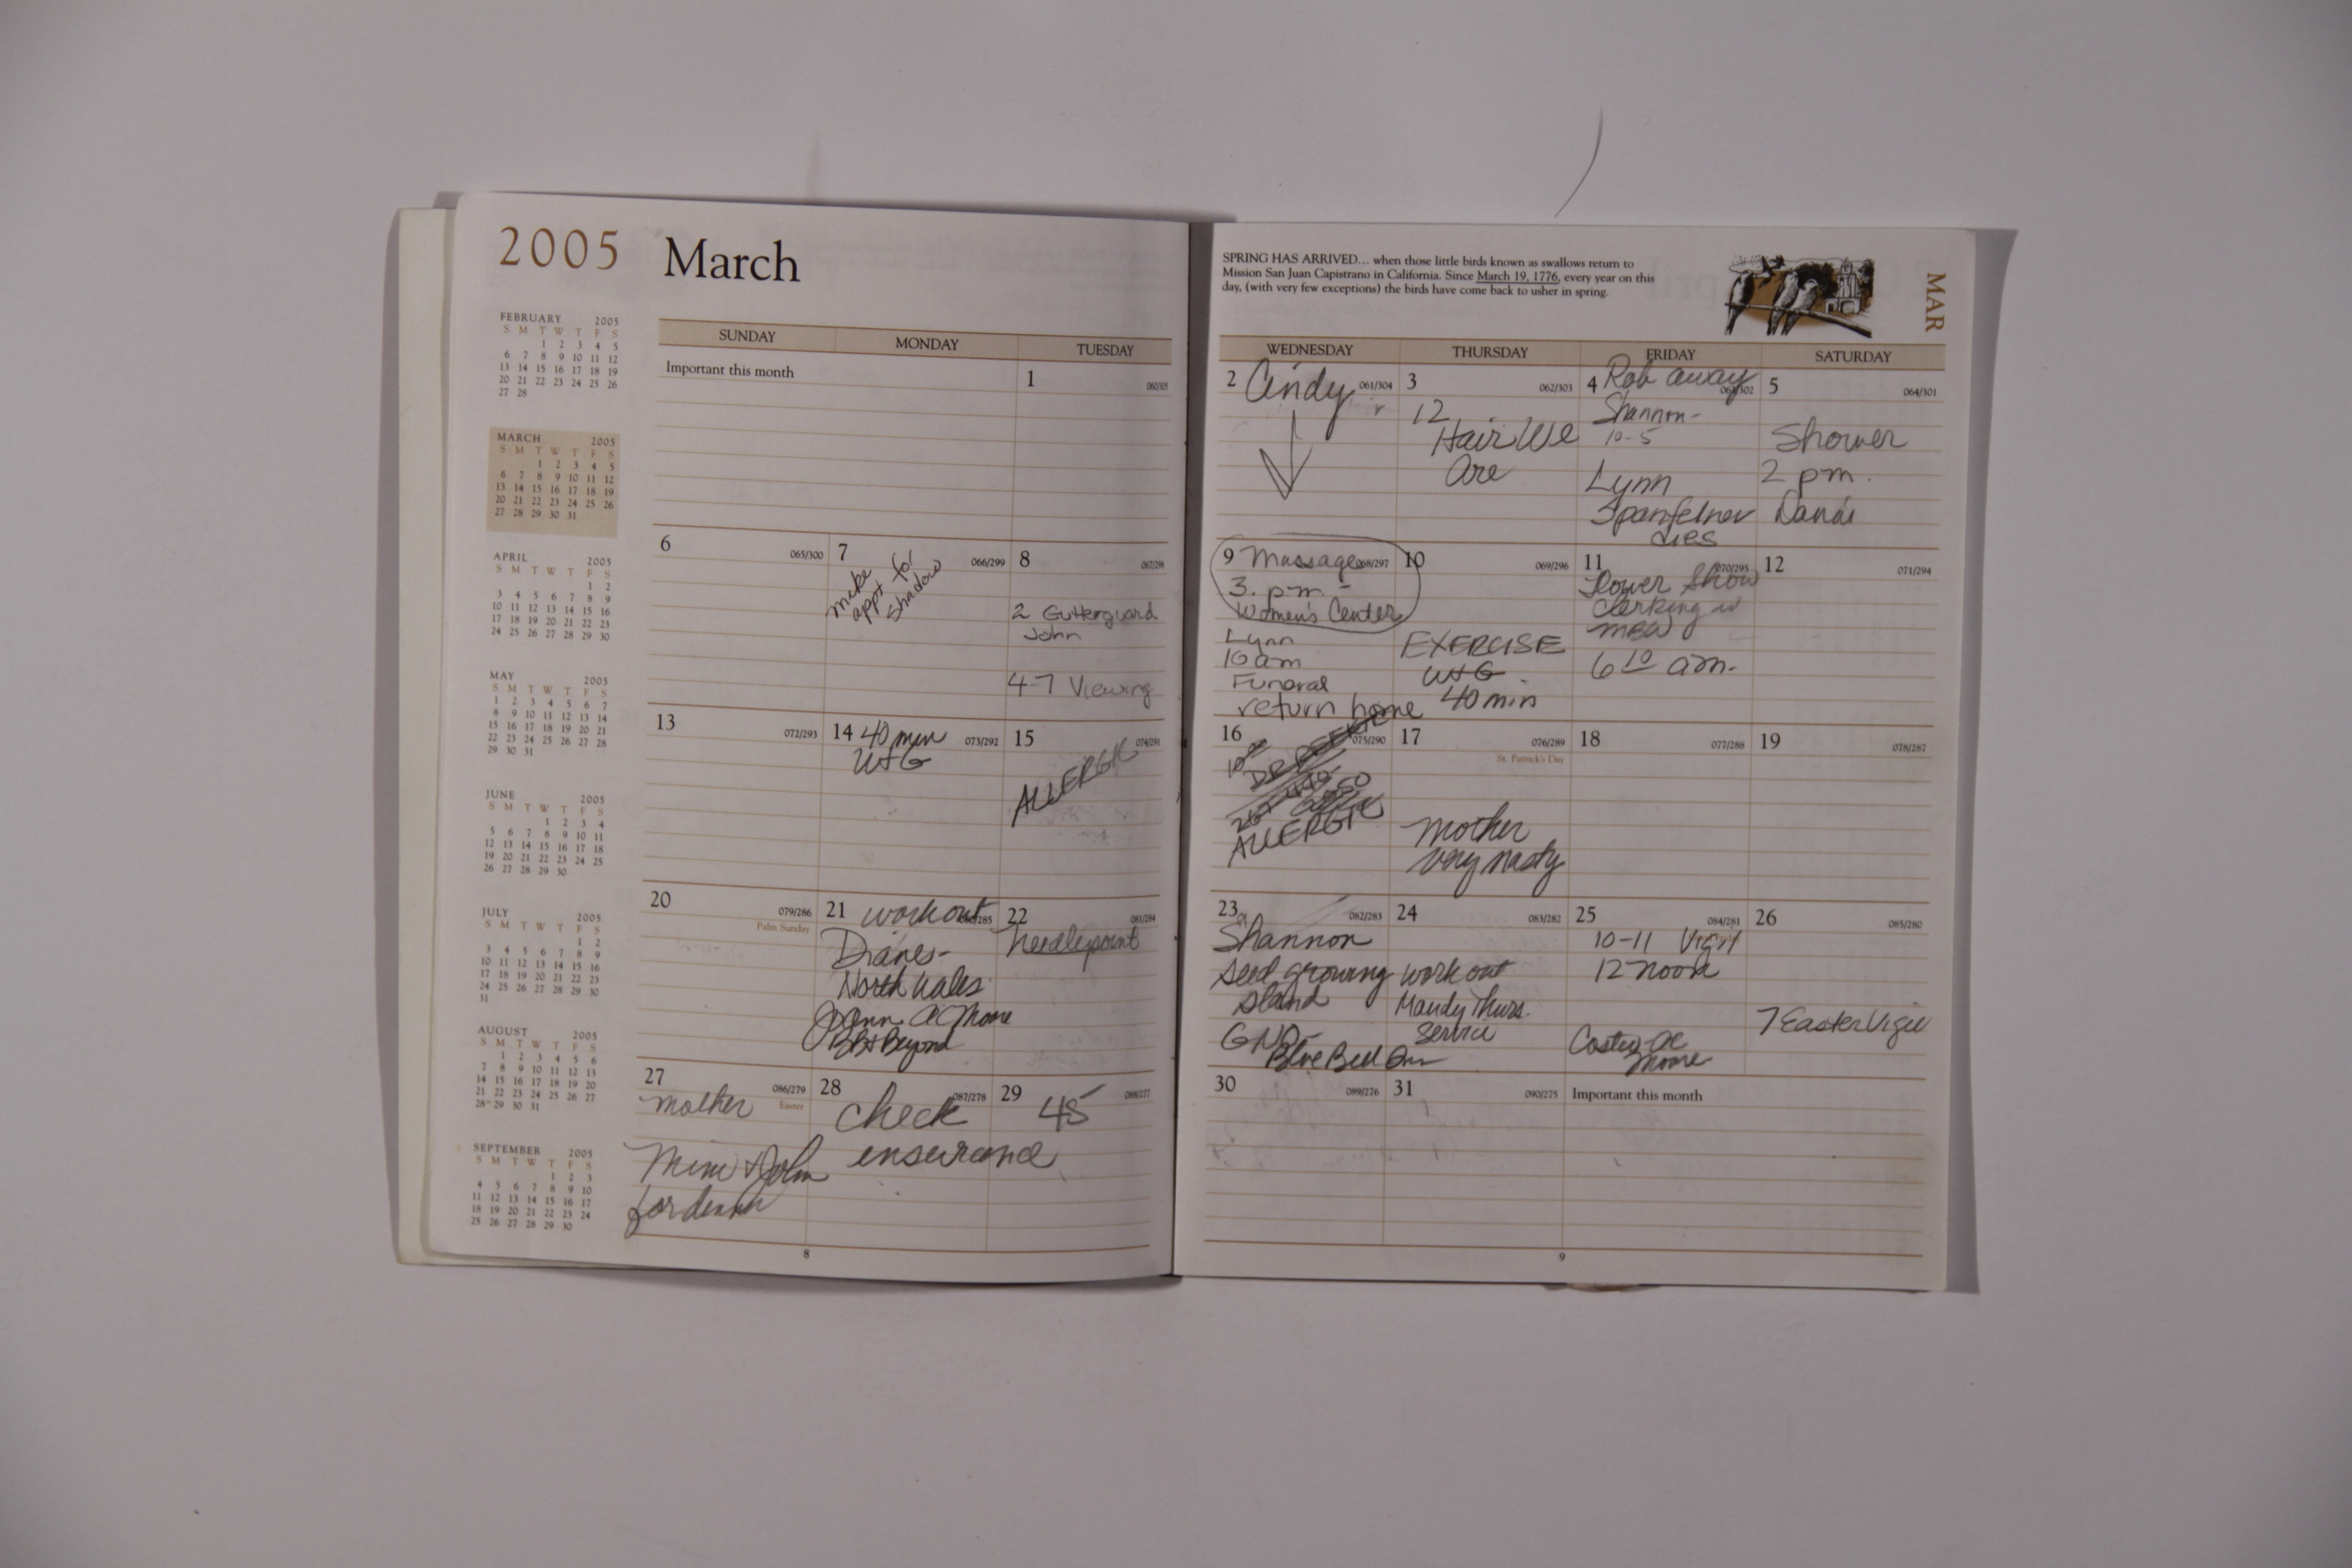 2005 March
FEBRUARY 2005
S M T W T F S
1 2 3 4 5
6 7 8 9 10 11 12
13 14 15 16 17 18 19
20 21 22 23 24 25 26
27 28
MARCH 2005
S M T W T F S
1 2 3 4 5
6 7 8 9 10 11 12
13 14 15 16 17 18 19
20 21 22 23 24 25 26
27 28 29 30 31
APRIL 2005
S M T W T F S
1 2
3 4 5 6 7 8 9
10 11 12 13 14 15 16
17 18 19 20 21 22 23
24 25 26 27 28 29 30
MAY 2005
S M T W T F S
1 2 3 4 5 6 7
8 9 10 11 12 13 14
15 16 17 18 19 20 21
22 23 24 25 26 27 28
29 30 31
JUNE 2005
S M T W T F S
1 2 3 4
5 6 7 8 9 10 11
12 13 14 15 16 17 18
19 20 21 22 23 24 25
26 27 28 29 30
JULY 2005
S M T W T F S
1 2
3 4 5 6 7 8 9
10 11 12 13 14 15 16
17 18 19 20 21 22 23
24 25 26 27 28 29 30
31
AUGUST 2005
S M T W T F S
1 2 3 4 5 6
7 8 9 10 11 12 13
14 15 16 17 18 19 20
21 22 23 24 25 26 27
28 29 30 31
SEPTEMBER 2005
S M T W T F S
1 2 3
4 5 6 7 8 9 10
11 12 13 14 15 16 17
18 19 20 21 22 23 24
25 26 27 28 29 30
SUNDAY MONDAY TUESDAY
Important this month
1 060/305
6 065/300
7 066/299
make
appt for
shadow
8 067/298
2 Gutterguard
John
4-7 Viewing
13 072/293
14 40 min 073/292
W+G
15 074/291
ALLERGIC
20 079/286
Palm Sunday
21 workout
Diane's-
North Wales
JoAnn AC Moore
BB+Beyond
22 081/284
needlepoint
27 086/279
mother Easter
Mimi + John
for dinner
28 087/278
check
29 088/277
45
8
SPRING HAS ARRIVED... when those little birds known as swallows return to
Mission San Juan Capistrano in California. Since March 19, 1776, every year on this
day, (with very few exceptions) the birds have come back to usher in spring.
MAR
WEDNESDAY THURSDAY FRIDAY SATURDAY
2 Cindy 061/304
3 062/303
12
Hair We
Are
4 Rob away
Shannon-
10-5
Lynn
dies
5 064/301
Shower
2 pm.
9 Massage 068/297
3. p.m. -
Women's Center
Lynn
10 am
Funeral
return home
10 069/296
EXERCISE
W+G
40 min
11 070/295
Flower Show
clerking w
MBW
6 10 am.
12 071/294
16 075/290
10
DR
ALLERGIC
17 076/289
St. Patrick's Day
mother
very nasty
18 077/288
19 078/287
23 082/283
Shannon
seed growing
stand
GND-
Blue Bell Inn
24 083/282
work out
Maudy Thurs.
Service
25 084/281
10-11 Vigil
12 noon
Costco AC
Moore
26 085/280
7 Easter Vigil
30 089/276
31 090/275
Important this month
9